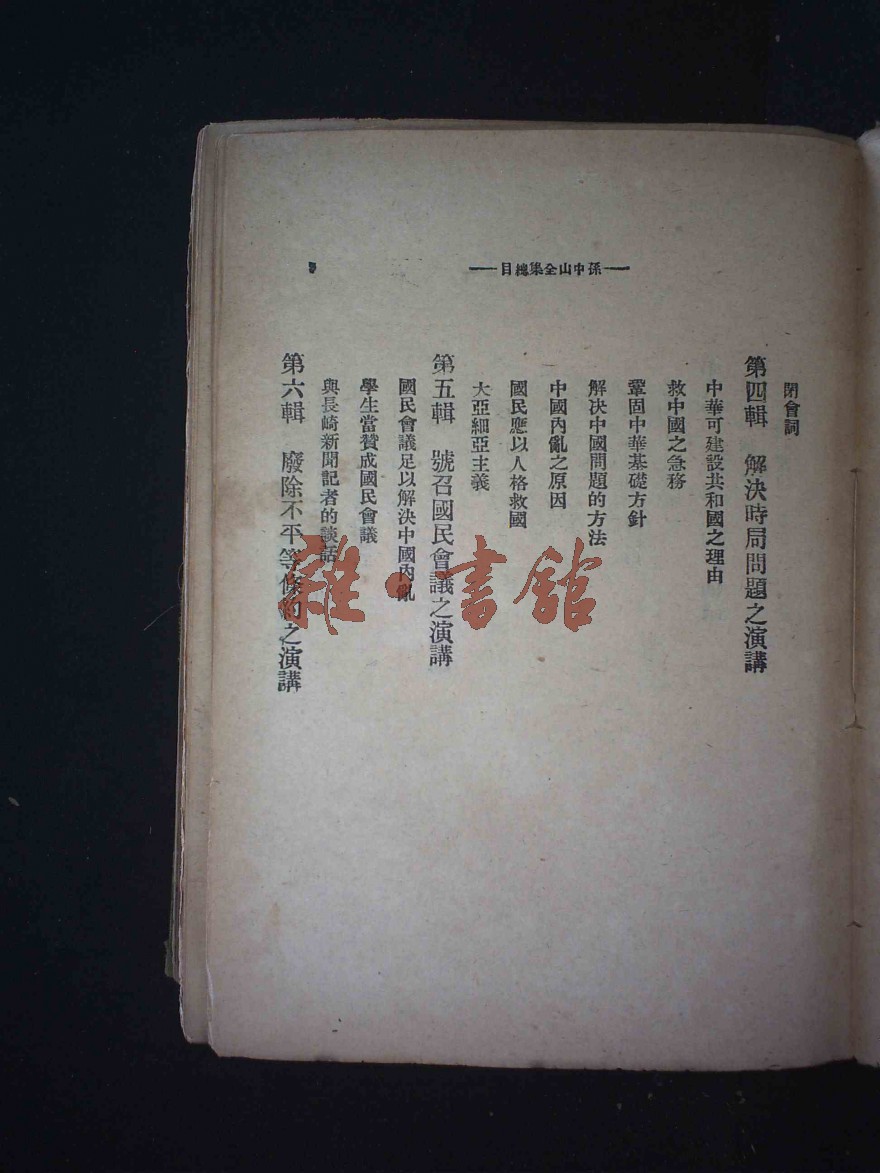 孫中山全集總目
閉會詞
第四輯 解決時局問題之演講
中華可建設共和國之理由
救中國之急務
鞏固中華基礎方針
解决中國問題的方法
中國內亂之原因
國民應以人格救國
大亞細亞主義
第五輯 號召國民會議之演講
國民會議足以解決中國內亂
學生當贊成國民會議
與長崎新聞記者的談話
第六輯 廢除不平等條約之演講
雜·書館